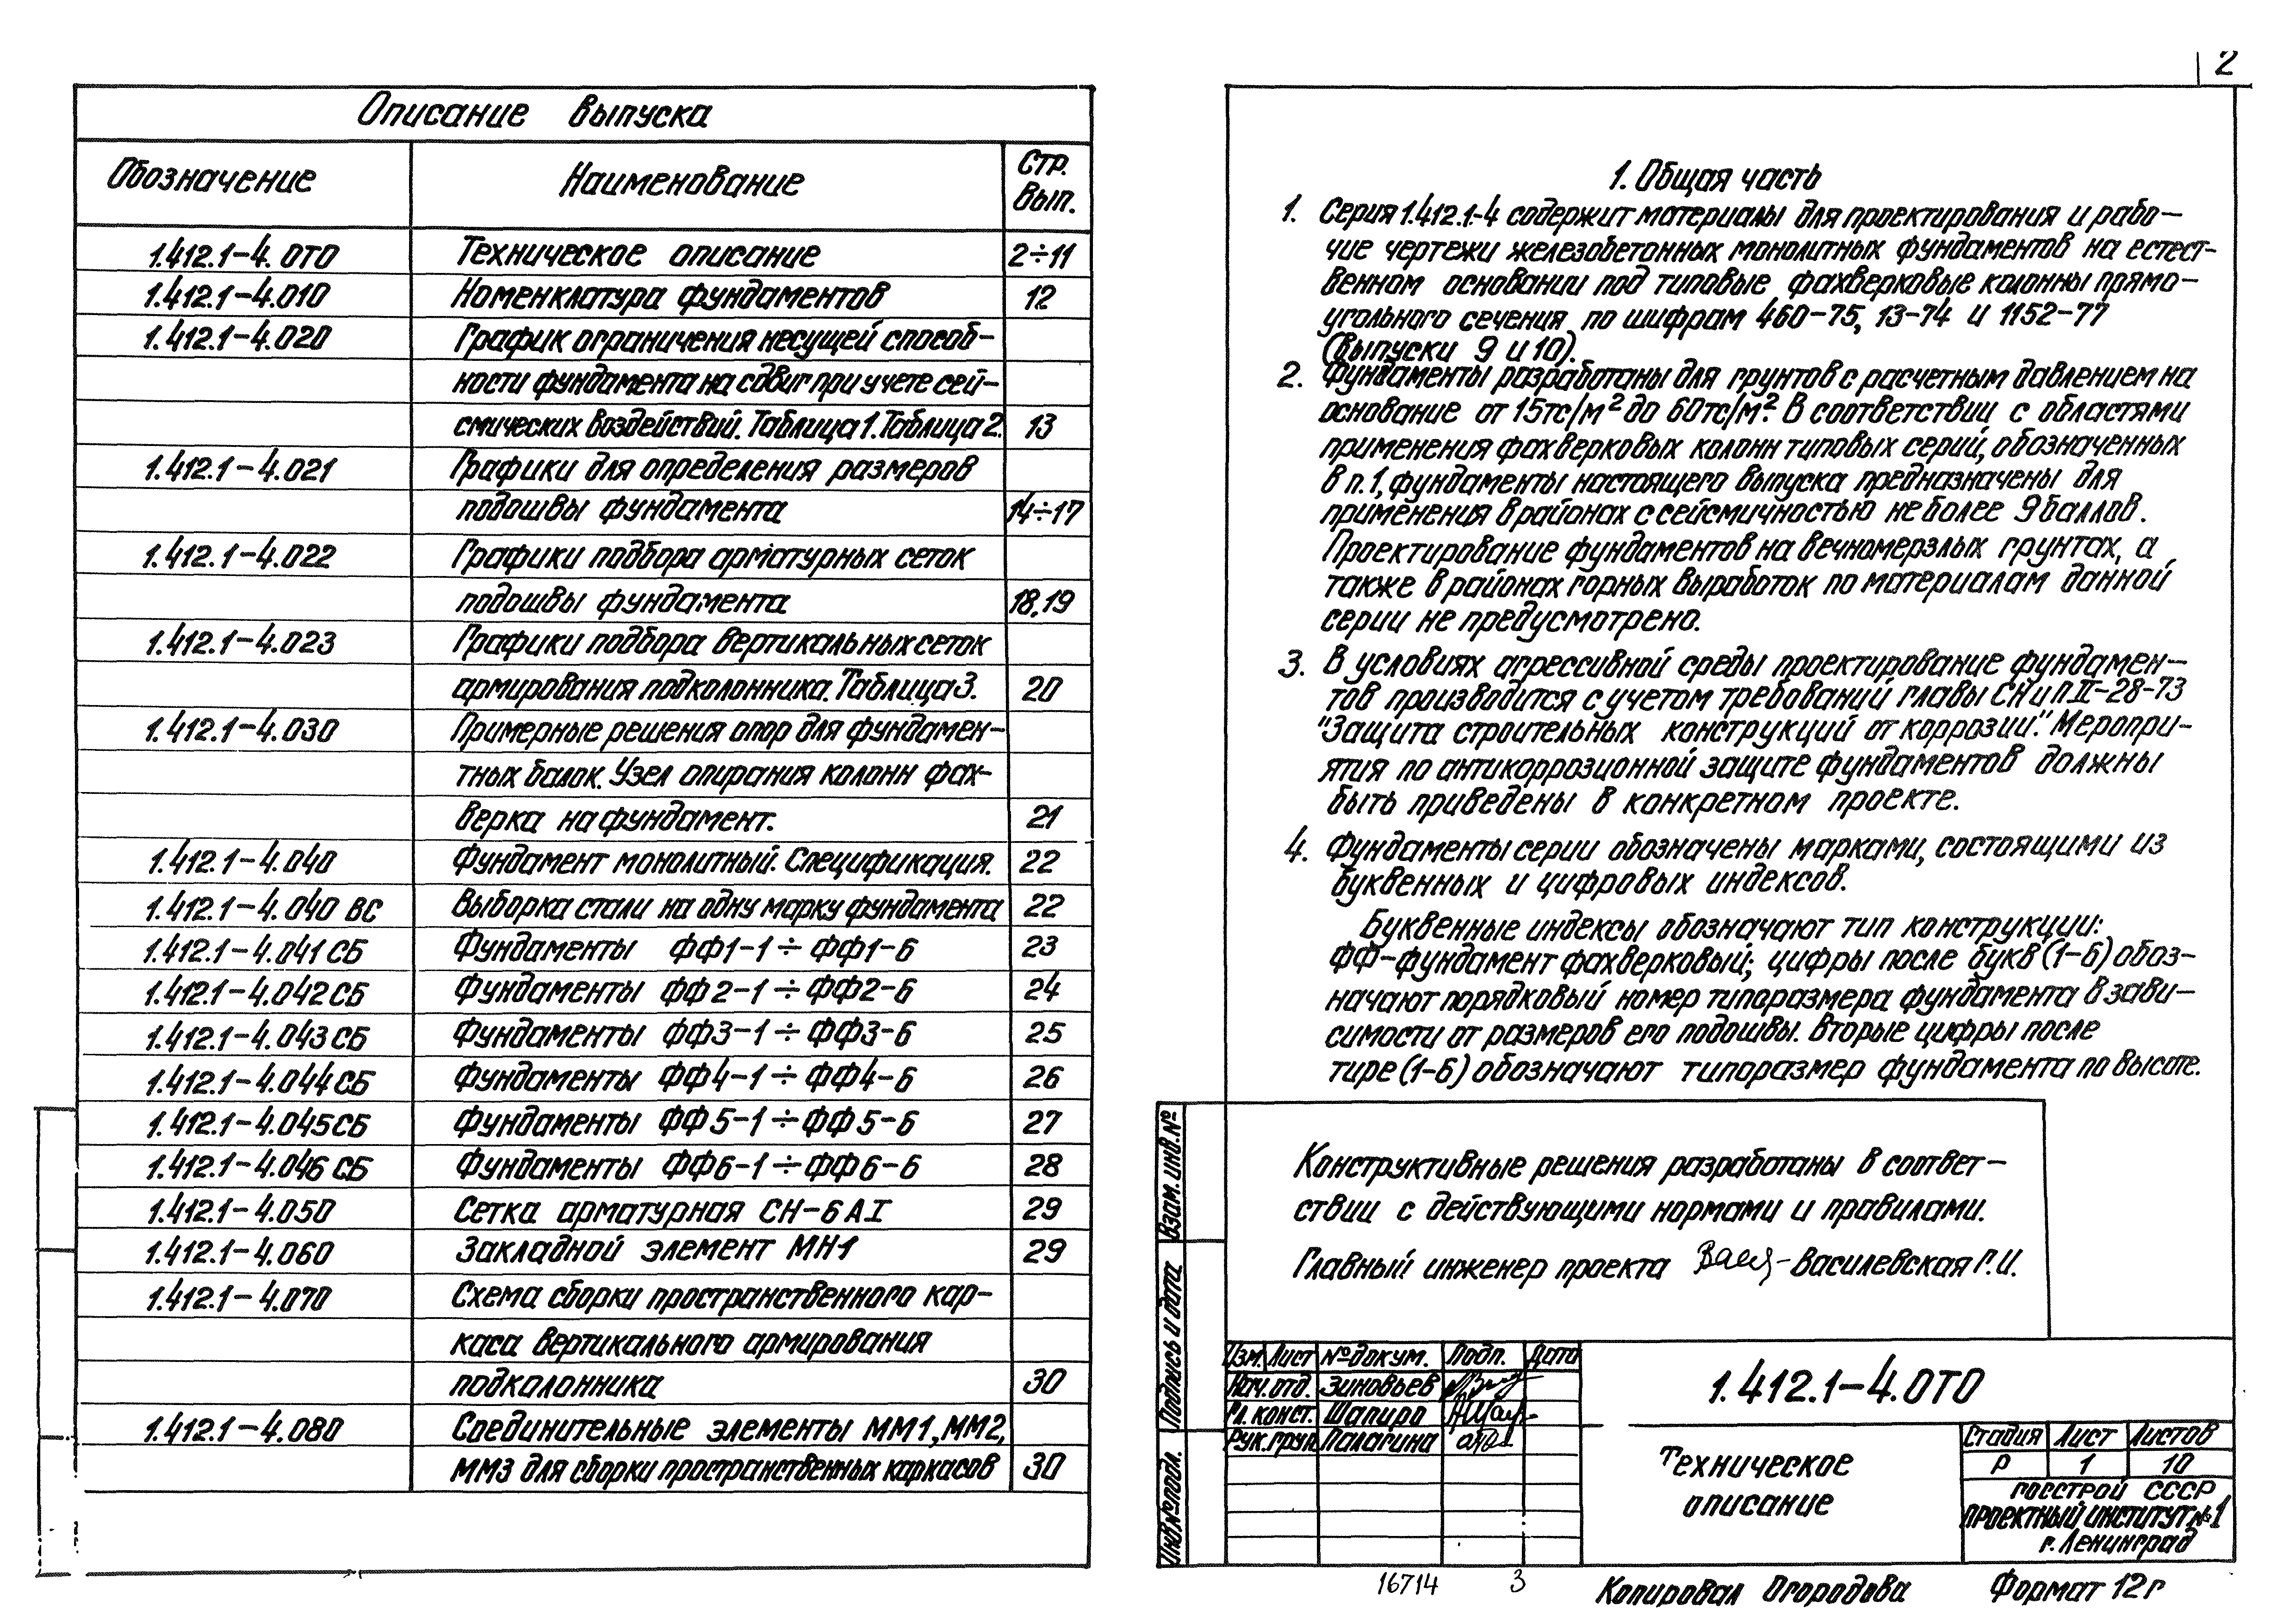 2
Описание выпуска
Обозначение Наименование Стр. Вып.
1.412.1-4.0ТО Техническое описание 2÷11
1.412.1-4.010 Номенклатура фундаментов 12
1.412.1-4.020 График ограничения несущей способ-
ности фундамента на сдвиг при учете сей-
смических воздействий. Таблица 1. Таблица 2. 13
1.412.1-4.021 Графики для определения размеров
подошвы фундамента 14÷17
1.412.1-4.022 Графики подбора арматурных сеток
подошвы фундамента 18,19
1.412.1-4.023 Графики подбора вертикальных сеток
армирования подколонника. Таблица 3. 20
1.412.1-4.030 Примерные решения опор для фундамен-
тных балок. Узел опирания колонн фах-
верка на фундамент. 21
1.412.1-4.040 Фундамент монолитный. Спецификация. 22
1.412.1-4.040 ВС Выборка стали на одну марку фундамента 22
1.412.1-4.041СБ Фундаменты ФФ1-1÷ФФ1-6 23
1.412.1-4.042СБ Фундаменты ФФ2-1÷ФФ2-6 24
1.412.1-4.043СБ Фундаменты ФФ3-1÷ФФ3-6 25
1.412.1-4.044СБ Фундаменты ФФ4-1÷ФФ4-6 26
1.412.1-4.045СБ Фундаменты ФФ5-1÷ФФ5-6 27
1.412.1-4.046СБ Фундаменты ФФ6-1÷ФФ6-6 28
1.412.1-4.050 Сетка арматурная СН-6АI 29
1.412.1-4.060 Закладной элемент МН1 29
1.412.1-4.070 Схема сборки пространственного кар-
каса вертикального армирования
подколонника 30
1.412.1-4.080 Соединительные элементы ММ1, ММ2,
ММ3 для сборки пространственных каркасов 30
1. Общая часть
1. Серия 1.412.1-4 содержит материалы для проектирования и рабо-
чие чертежи железобетонных монолитных фундаментов на естест-
венном основании под типовые фахверковые колонны прямо-
угольного сечения по шифрам 460-75, 13-74 и 1152-77
(Выпуски 9 и 10).
2. Фундаменты разработаны для грунтов с расчетным давлением на
основание от 15тс/м² до 60тс/м². В соответствии с областями
применения фахверковых колонн типовых серий, обозначенных
в п.1, фундаменты настоящего выпуска предназначены для
применения в районах с сейсмичностью не более 9 баллов.
Проектирование фундаментов на вечномерзлых грунтах, а
также в районах горных выработок по материалам данной
серии не предусмотрено.
3. В условиях агрессивной среды проектирование фундамен-
тов производится с учетом требований главы СНиП II-28-73
"Защита строительных конструкций от коррозии". Меропри-
ятия по антикоррозионной защите фундаментов должны
быть приведены в конкретном проекте.
4. Фундаменты серии обозначены марками, состоящими из
буквенных и цифровых индексов.
Буквенные индексы обозначают тип конструкции:
ФФ-фундамент фахверковый; цифры после букв (1-6) обоз-
начают порядковый номер типоразмера фундамента в зави-
симости от размеров его подошвы. Вторые цифры после
тире (1-6) обозначают типоразмер фундамента по высоте.
Конструктивные решения разработаны в соответ-
ствии с действующими нормами и правилами.
Главный инженер проекта Васил- Василевская Г.И.
Взам. инв.№
Подпись и дата
Инв.№ подл.
Изм. Лист № докум. Подп. Дата
Нач. отд. Зиновьев
Гл. конст. Шапиро
Рук. груп. Палагина
1.412.1-4.0ТО
Техническое
описание
Стадия Лист Листов
Р 1 10
Госстрой СССР
Проектный институт №1
г. Ленинград
16714 3
Копировал Огородова Формат 12г